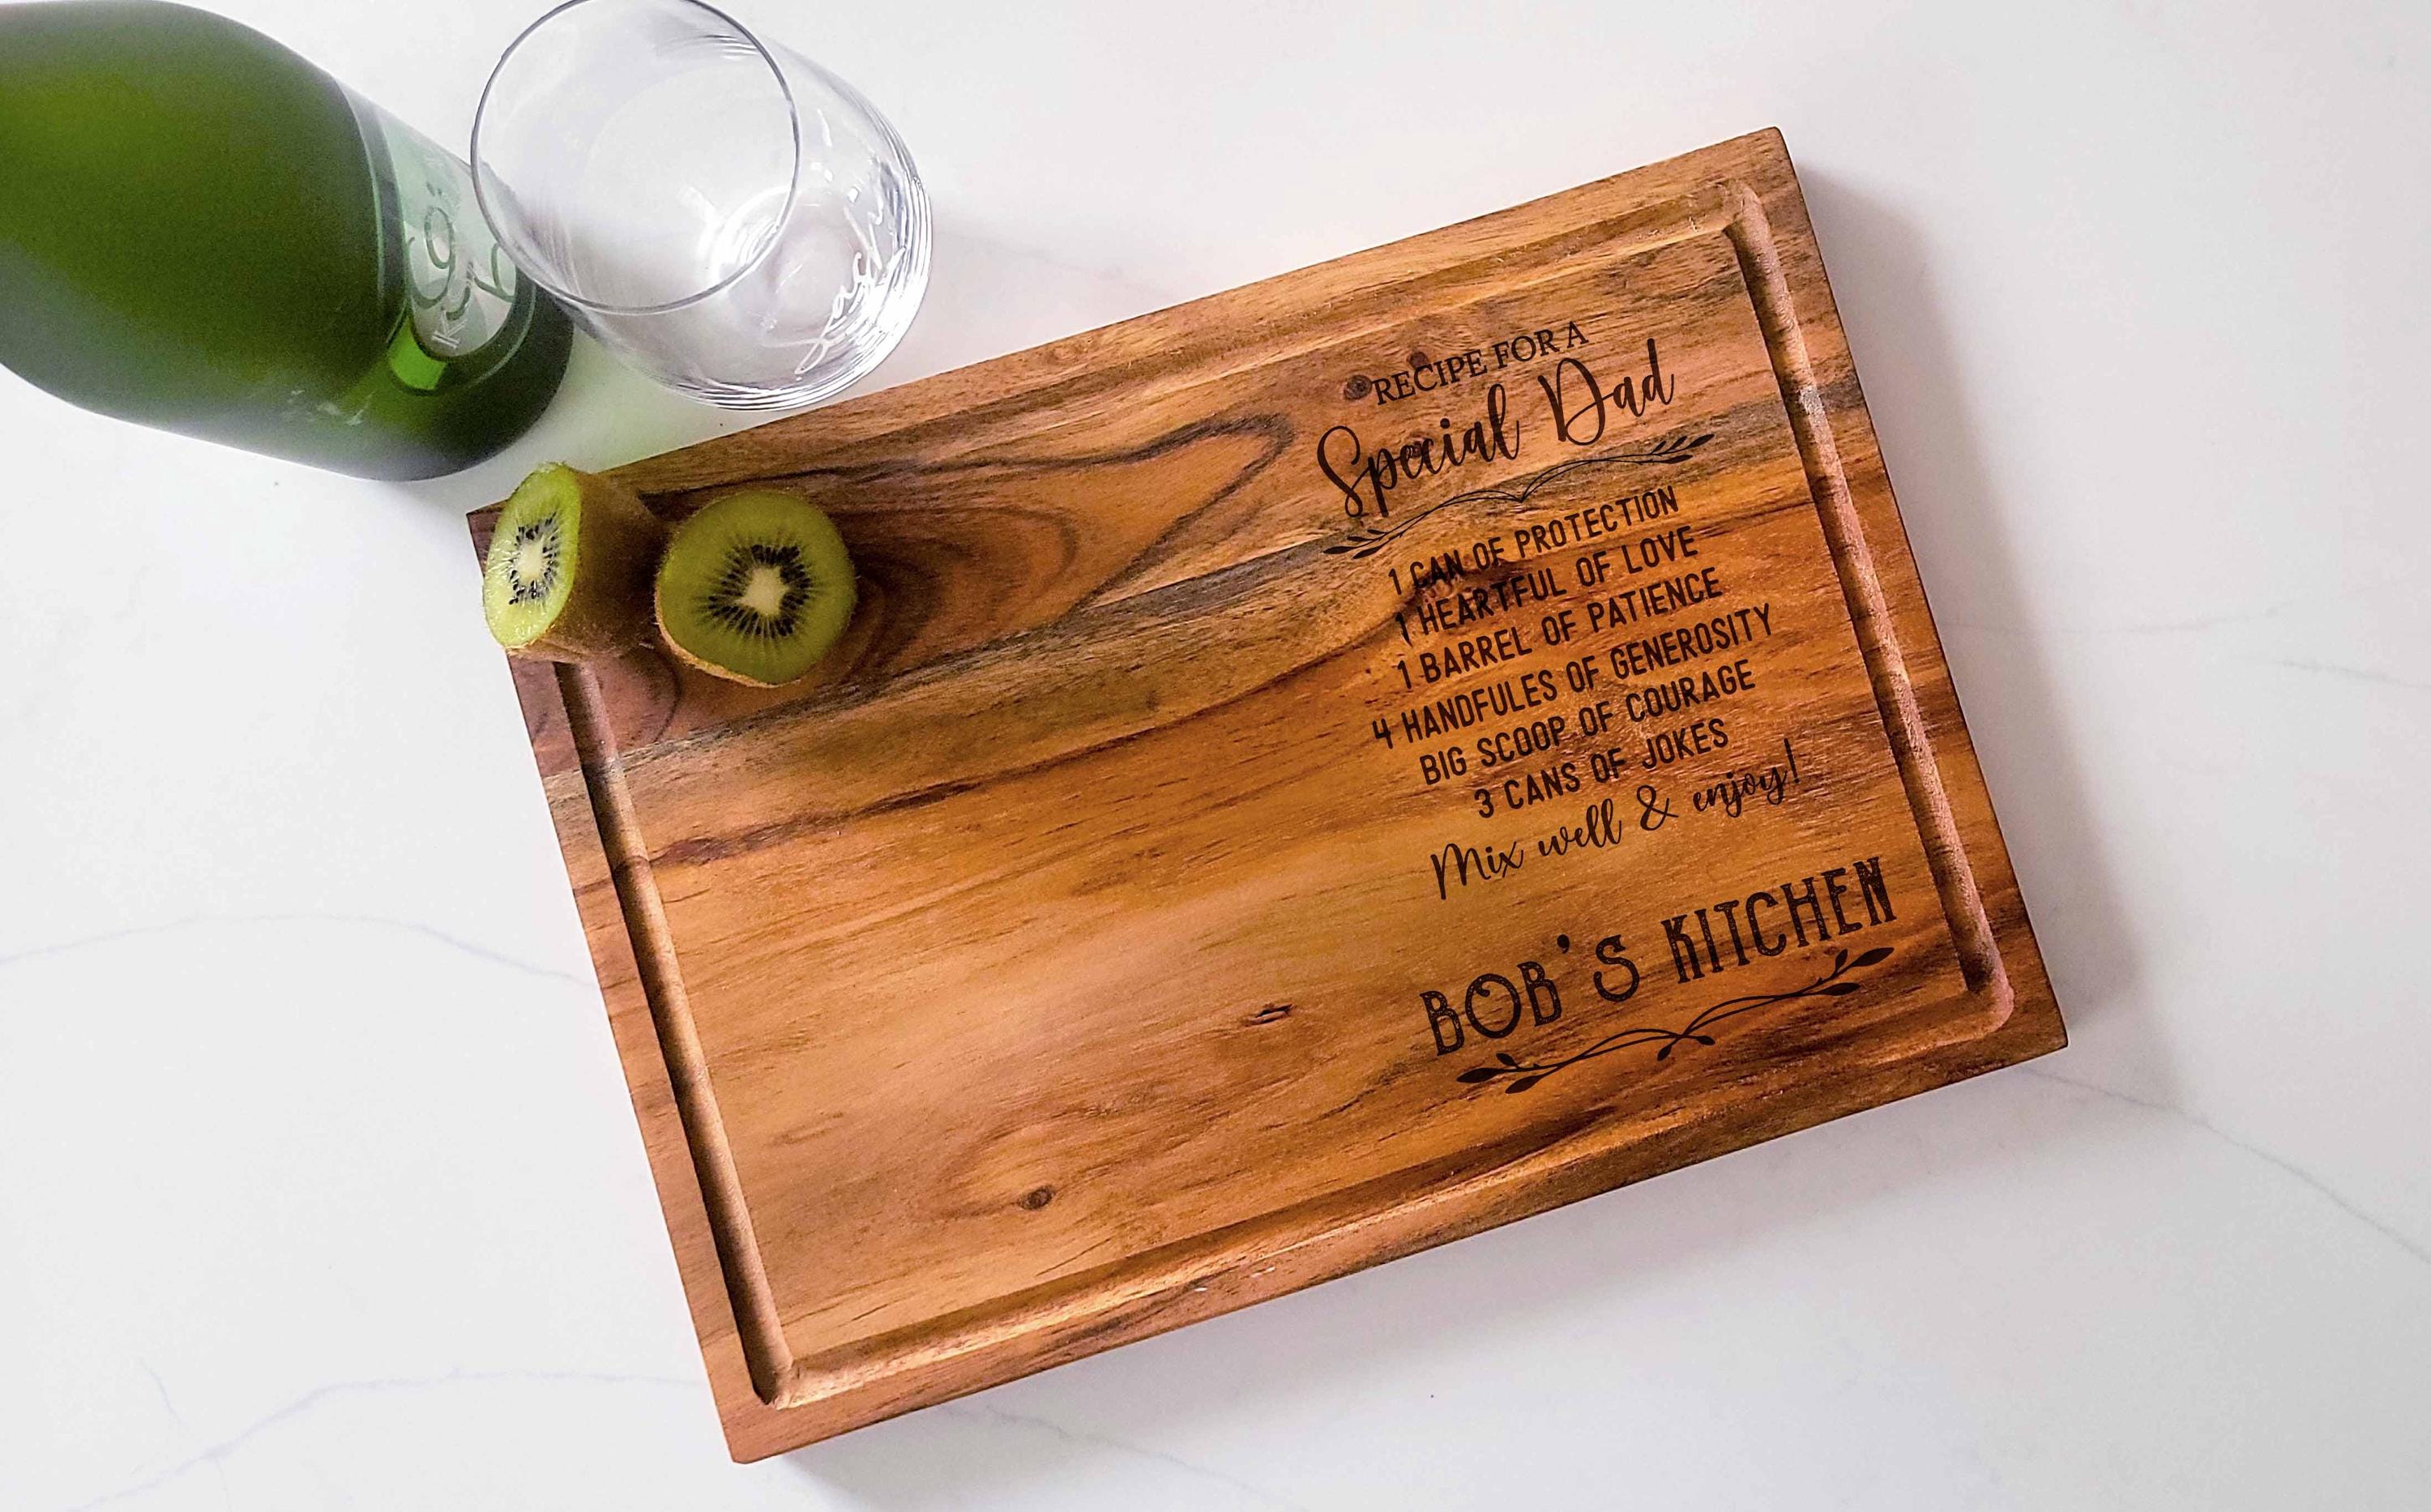 RECIPE FOR A
Special Dad
1 CAN OF PROTECTION
1 HEARTFUL OF LOVE
1 BARREL OF PATIENCE
4 HANDFULES OF GENEROSITY
BIG SCOOP OF COURAGE
3 CANS OF JOKES
Mix well & enjoy!
BOB'S KITCHEN